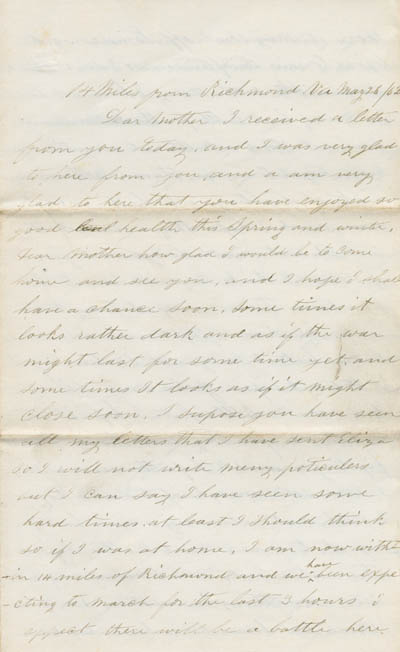 14 Miles from Richmond Va May 26 /62
Dear Mother I received a letter
from you today, and I was very glad
to here from you, and a am very
glad to here that you have enjoyed so
good health this Spring and winter.
dear Mother how glad I would be to come
home and see you, and I hope i shal
have a chance soon, some times it
looks rather dark and as if the war
might last for some time yet, and
some times It looks as if it might
close soon, I supose you have seen
all my letters that I have sent Eliza
so I will not write meny poticulers
but I can say I have seen some
hard times, at least I should think
so if I was at home, I am now with
-in 14 miles of Richmond and we have been expe
-cting to march for the last 3 hours i
expect there will be a battle here